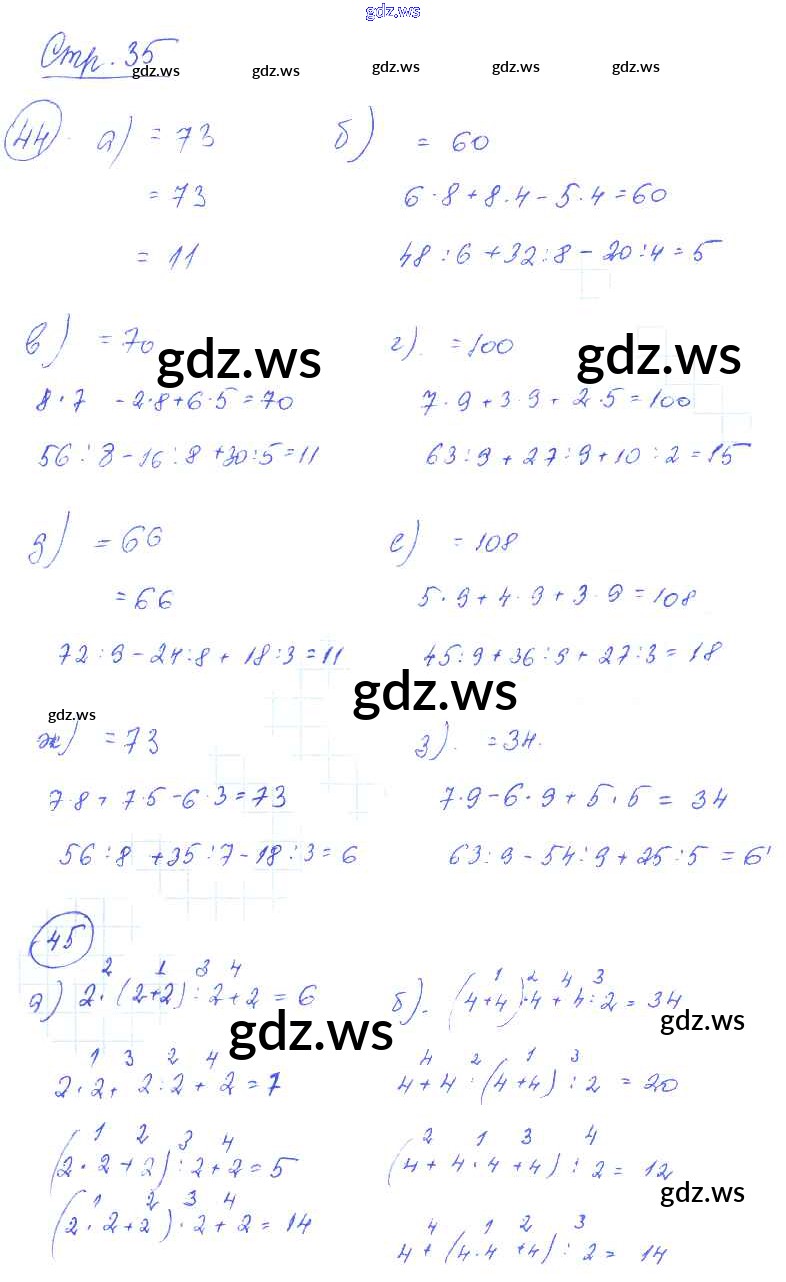 gdz.ws
Стр. 35
gdz.ws gdz.ws gdz.ws gdz.ws gdz.ws
44. а) = 73 б) = 60
= 73 6·8+8·4-5·4=60
= 11 48:6+32:8-20:4=5
в) = 70 г). =100
gdz.ws gdz.ws
8·7 -2·8+6·5=70 7·9+3·9+2·5=100
56:8-16:8+30:5=11 63:9+27:9+10:2=15
д) = 66 е) =108
= 66 5·9+4·9+3·9=108
72:9-24:8+18:3=11 45:9+36:9+27:3=18
gdz.ws
gdz.ws
ж) = 73 з). =34.
7·8+7·5-6·3=73 7·9-6·9+5·5=34
56:8+35:7-18:3=6 63:9-54:9+25:5=6
45
2 1 3 4 1 2 4 3
а) 2·(2+2):2+2=6 б). (4+4)·4+4:2=34
gdz.ws gdz.ws
1 3 2 4 4 2 1 3
2·2+2:2+2=7 4+4·(4+4):2=20
1 2 3 4 2 1 3 4
(2·2+2):2+2=5 (4+4·4+4):2=12
gdz.ws
1 2 3 4 4 1 2 3
(2·2+2)·2+2=14 4+(4·4+4):2=14